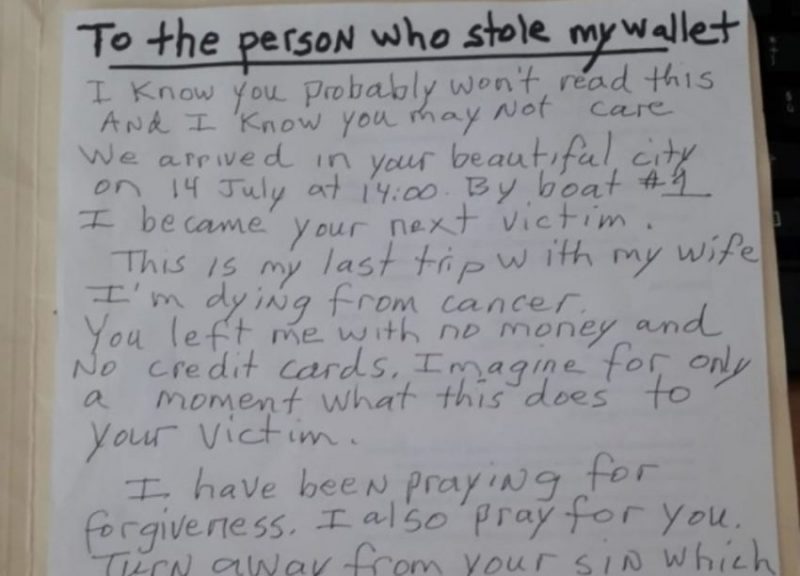 To the person who stole my wallet
I know you probably won't read this
And I know you may not care
We arrived in your beautiful city
on 14 July at 14:00. By boat #1
I became your next victim.
This is my last trip with my wife
I'm dying from cancer.
You left me with no money and
No credit cards. Imagine for only
a moment what this does to
your victim.
I have been praying for
forgiveness. I also pray for you.
Turn away from your sin which